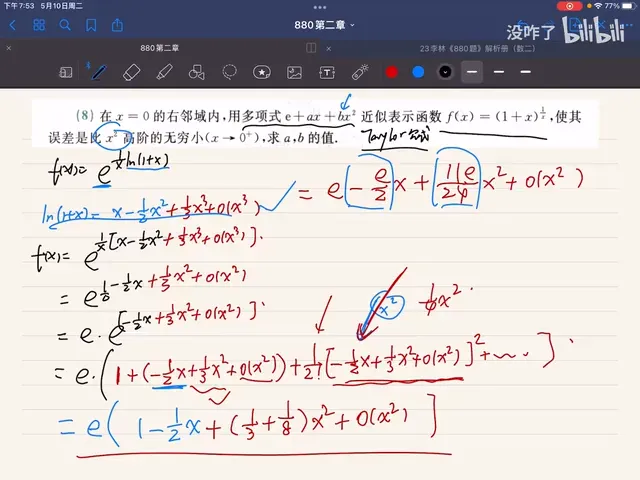 下午7:53 5月10日周二
77%
880第二章
没咋了 bilibili
880第二章
23李林《880题》解析册（数二）
(8) 在 x = 0 的右邻域内，用多项式 e + ax + bx² 近似表示函数 f(x) = (1 + x)^{1/x}，使其
误差是比 x² 高阶的无穷小(x → 0⁺)，求 a，b 的值.
Taylor公式
f(x) = e^{1/x ln(1+x)}
= e - e/2 x + 11e/24 x² + o(x²)
ln(1+x) = x - 1/2 x² + 1/3 x³ + o(x³)
f(x) = e^{1/x [x - 1/2 x² + 1/3 x³ + o(x³)]}
= e^{1 - 1/2 x + 1/3 x² + o(x²)}
= e · e^{[-1/2 x + 1/3 x² + o(x²)]}
x²
= e · (1 + (-1/2 x + 1/3 x² + o(x²)) + 1/2! [-1/2 x + 1/3 x² + o(x²)]² + ...]
= e ( 1 - 1/2 x + (1/3 + 1/8) x² + o(x²) ]